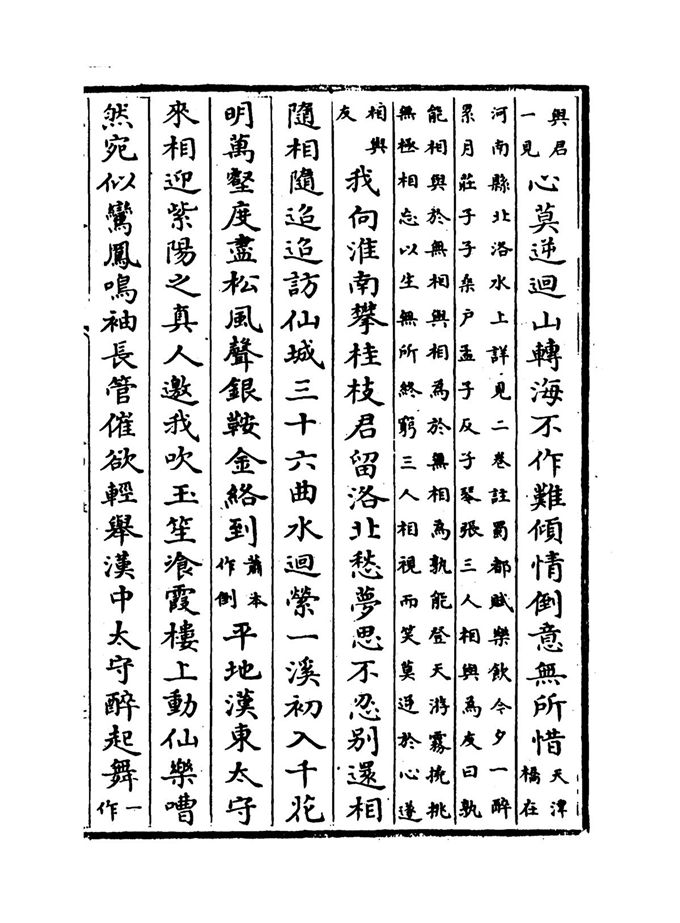 與君一見心莫逆迴山轉海不作難傾情倒意無所惜天津橋在
河南縣北洛水上詳見二卷註蜀都賦樂飲今夕一醉
累月莊子子桑戶孟子反子琴張三人相與為友曰孰
能相與於無相與相為於無相為孰能登天游霧撓挑
無極相忘以生無所終窮三人相視而笑莫逆於心遂
相與友我向淮南攀桂枝君留洛北愁夢思不忍別還相
隨相隨迢迢訪仙城三十六曲水迴縈一溪初入千花
明萬壑度盡松風聲銀鞍金絡到蕭本作倒平地漢東太守
來相迎紫陽之真人邀我吹玉笙飡霞樓上動仙樂嘈
然宛似鸞鳳鳴袖長管催欲輕舉漢中太守醉起舞一作